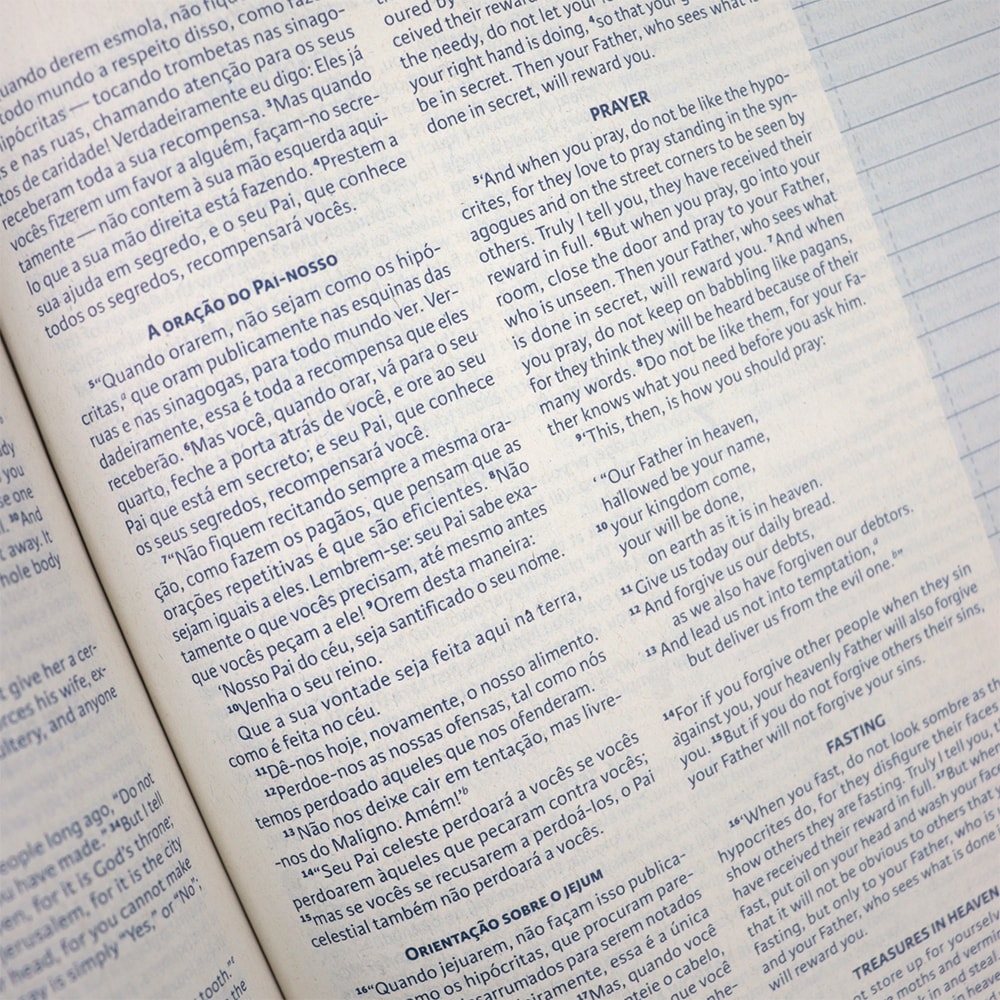 dy
you
se one
³⁰And
away. It
hole body
give her a cer-
orces his wife, ex-
ultery, and anyone
eople long ago, “Do not
ou have made.” ³⁴But I tell
en, for it is God’s throne;
Jerusalem, for it is the city
head, for you cannot make
ay is simply “Yes,” or “No”;
tooth.”
the
uando derem esmola, não
todo mundo a respeito disso, como
hipócritas — tocando trombetas nas sinago-
s e nas ruas, chamando atenção para os seus
tos de caridade! Verdadeiramente eu digo: Eles já
receberam toda a sua recompensa. ³Mas quando
vocês fizerem um favor a alguém, façam-no secre-
tamente — não contem à sua mão esquerda aqui-
lo que a sua mão direita está fazendo. ⁴Prestem a
sua ajuda em segredo, e o seu Pai, que conhece
todos os segredos, recompensará vocês.
A ORAÇÃO DO PAI-NOSSO
⁵“Quando orarem, não sejam como os hipó-
critas,ᵃ que oram publicamente nas esquinas das
ruas e nas sinagogas, para todo mundo ver. Ver-
dadeiramente, essa é toda a recompensa que eles
receberão. ⁶Mas você, quando orar, vá para o seu
quarto, feche a porta atrás de você, e ore ao seu
Pai que está em secreto; e seu Pai, que conhece
os seus segredos, recompensará você.
⁷“Não fiquem recitando sempre a mesma ora-
ção, como fazem os pagãos, que pensam que as
orações repetitivas é que são eficientes. ⁸Não
sejam iguais a eles. Lembrem-se: seu Pai sabe exa-
tamente o que vocês precisam, até mesmo antes
que vocês peçam a ele! ⁹Orem desta maneira:
‘Nosso Pai do céu, seja santificado o seu nome.
¹⁰Venha o seu reino.
Que a sua vontade seja feita aqui na terra,
como é feita no céu.
¹¹Dê-nos hoje, novamente, o nosso alimento.
¹²Perdoe-nos as nossas ofensas, tal como nós
temos perdoado aqueles que nos ofenderam.
¹³Não nos deixe cair em tentação, mas livre-
-nos do Maligno. Amém!’ᵇ
¹⁴“Seu Pai celeste perdoará a vocês se vocês
perdoarem àqueles que pecaram contra vocês;
¹⁵mas se vocês se recusarem a perdoá-los, o Pai
celestial também não perdoará a vocês.
ORIENTAÇÃO SOBRE O JEJUM
¹⁶“Quando jejuarem, não façam isso publica-
omo os hipócritas, que procuram pare-
carrumados para serem notados
eiramente, essa é a única
¹⁷Mas, quando você
nteie o cabelo,
que você
nhe-
oured by
ceived their reward
the needy, do not let your
your right hand is doing, ⁴so that your
be in secret. Then your Father, who sees what is
done in secret, will reward you.
PRAYER
⁵‘And when you pray, do not be like the hypo-
crites, for they love to pray standing in the syn-
agogues and on the street corners to be seen by
others. Truly I tell you, they have received their
reward in full. ⁶But when you pray, go into your
room, close the door and pray to your Father,
who is unseen. Then your Father, who sees what
is done in secret, will reward you. ⁷And when
you pray, do not keep on babbling like pagans,
for they think they will be heard because of their
many words. ⁸Do not be like them, for your Fa-
ther knows what you need before you ask him.
⁹‘This, then, is how you should pray:
‘ “Our Father in heaven,
hallowed be your name,
¹⁰ your kingdom come,
your will be done,
on earth as it is in heaven.
¹¹ Give us today our daily bread.
¹² And forgive us our debts,
as we also have forgiven our debtors.
¹³ And lead us not into temptation,ᵃ
but deliver us from the evil one.ᵇ”
¹⁴For if you forgive other people when they sin
against you, your heavenly Father will also forgive
you. ¹⁵But if you do not forgive others their sins,
your Father will not forgive your sins.
FASTING
¹⁶‘When you fast, do not look sombre as th
hypocrites do, for they disfigure their faces
show others they are fasting. Truly I tell you, t
have received their reward in full. ¹⁷But whe
fast, put oil on your head and wash your fac
that it will not be obvious to others that y
fasting, but only to your Father, who is
and your Father, who sees what is done
will reward you.
TREASURES IN HEAVEN
not store up for yourselv
moths and vermin
in and steal.
heav